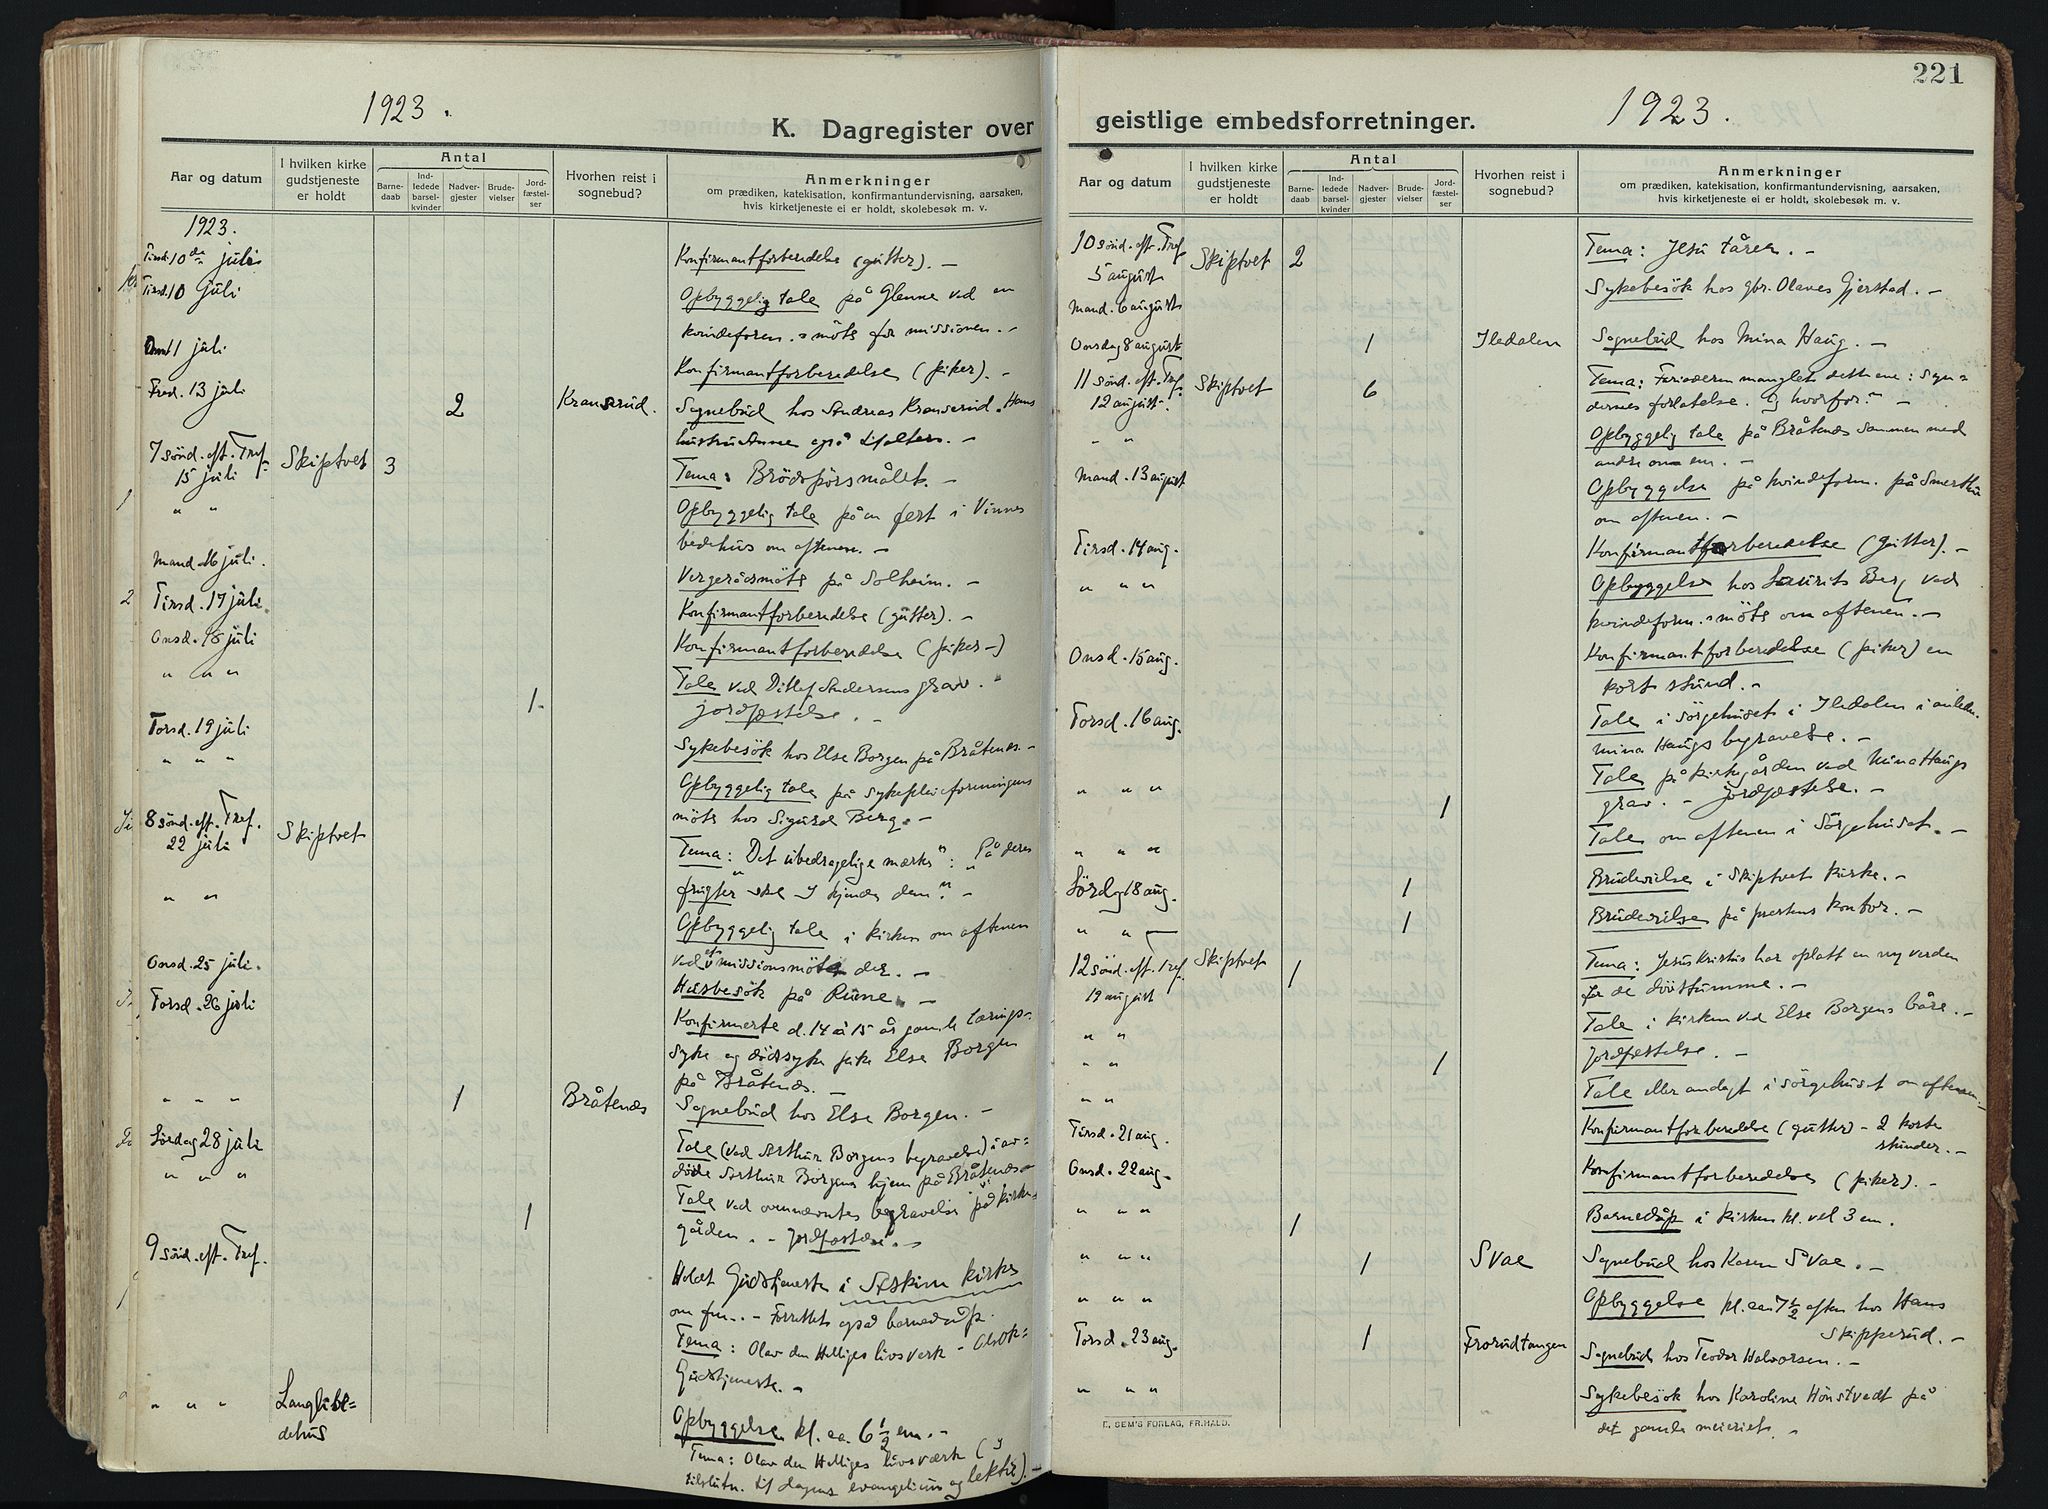 1923.
K. Dagregister over
Aar og datum
I hvilken kirke gudstjeneste er holdt
Antal
Barne-daab
Ind-ledede barsel-kvinder
Nadver-gjester
Brude-vielser
Jord-fæstel-ser
Hvorhen reist i sognebud?
Anmerkninger
om prædiken, katekisation, konfirmantundervisning, aarsaken,
hvis kirketjeneste ei er holdt, skolebesøk m. v.
1923.
Tirsd. 10de juli
Konfirmantforberedelse (gutter). –
Tirsd. 10 juli
Opbyggelig tale på Glenne ved en
kvindeforen.s möte for missionen. –
Onsd. 11 juli
Konfirmantforberedelse (piker). –
Fred. 13 juli 2 Kranserud.
Sognebud hos Andreas Kranserud. Hans
hustru Anne også
7 sönd. eft. Tref. 15 juli Skiptvet 3
Tema: Brödspörsmålet. –
" "
Opbyggelig tale på en fest i Vinnes
bedehus om aftenen. –
Mand. 16 juli.
Vergerådsmöte på Solheim. –
Tirsd. 17 juli
Konfirmantforberedelse (gutter). –
Onsd. 18 juli
Konfirmantforberedelse (piker –)
" " " 1.
Tale ved Ditlef Andersens grav.
jordfæstelse. –
Torsd. 19 juli
Sykebesök hos Else Borgen på Bråtenes. –
" " "
Opbyggelig tale på sykepleieforeningens
möte hos Sigurd Berg. –
8 sönd. eft. Tref. 22 juli Skiptvet
Tema: "Det ubedragelige mærke": "På deres
frugter skal I kjende dem". –
" "
Opbyggelig tale i kirken om aftenen
ved et missionsmöte der. –
Onsd. 25 juli.
Husbesök på Rune. –
Torsd. 26 juli
Konfirmerte d. 14 à 15 år gamle tærings-
syke og dödssyke pike Else Borgen
på Bråtenes. –
" " " 1 Bråtenes
Sognebud hos Else Borgen. –
Lördag 28 juli
Tale (ved Arthur Borgens begravelse) i av-
döde Arthur Borgens hjem på Bråtenes –
" " " 1
Tale ved ovennævntes begravelse på kirke-
gården. – Jordfæstelse. –
9 sönd. eft. Tref.
Holdt Gudstjeneste i Askim kirke
om fm. – Forrettet også barnedåp.
Tema: Olav den Helliges livsverk – Olsok-
Gudstjeneste. –
" " " Langlibe-
dehus
Opbyggelse kl. ca. 6 ½ em. –
Tema: Olav den Helliges livsværk (i
tilslutn. til dagens evangelium og lektie). –
221
geistlige embedsforretninger.
1923.
Aar og datum
I hvilken kirke gudstjeneste er holdt
Antal
Barne-daab
Ind-ledede barsel-kvinder
Nadver-gjester
Brude-vielser
Jord-fæstel-ser
Hvorhen reist i sognebud?
Anmerkninger
om prædiken, katekisation, konfirmantundervisning, aarsaken,
hvis kirketjeneste ei er holdt, skolebesøk m. v.
10 sönd. eft. Tref. 5 august Skiptvet 2
Tema: Jesu tårer. –
Mand. 6 august
Sykebesök hos gbr. Olaves Gjerstad. –
Onsdag 8 august 1 Iledalen
Sognebud hos Mina Haug. –
11 sönd. eft. Tref. 12 august. Skiptvet 6
Tema: Farisæeren manglet dette ene: Syn-
dernes forlatelse. Og hvorfor? –
" "
Opbyggelig tale på Bråtenes sammen med
andre om em. –
Mand. 13 august
Opbyggelse på kvindeforen. på
om aftenen. –
Tirsd. 14 aug.
Konfirmantforberedelse (gutter). –
" " "
Opbyggelse hos Laurits Berg ved
kvindeforen.s möte om aftenen. –
Onsd. 15 aug.
Konfirmantforberedelse (piker) en
kort stund. –
Torsd. 16 aug.
Tale i sörgehuset i Iledalen i anledn.
Mina Haugs begravelse. –
" " " 1
Tale på kirkegården ved Mina Haugs
grav. – Jordfæstelse. –
" " "
Tale om aftenen i Sörgehuset. –
Lördag 18 aug. 1
Brudevielse i Skiptvet kirke. –
" " — 1
Brudevielse på prestens kontor. –
12 sönd. eft. Tref. 19 august Skiptvet 1
Tema: Jesus Kristus har oplatt en ny verden
for de dövstumme. –
" "
Tale i kirken ved Else Borgens båre. –
" " 1
Jordfæstelse. –
" "
Tale eller andagt i sörgehuset om aftenen. –
Tirsd. 21 aug.
Konfirmantforberedelse (gutter) – 2 korte
stunder. –
Onsd. 22 aug.
Konfirmantforberedelse (piker). –
" " " 1
Barnedåp i kirken kl. vel 3 em.
" " " 1 Svae
Sognebud hos Karen Svae. –
" " "
Opbyggelse kl. ca. 7 ½ aften hos Hans
Skipperud. –
Torsd. 23 aug. 1 Frorudtangen
Sognebud hos Teodor Halvorsen. –
" " "
Sykebesök hos Karoline Hönstvedt på
det gamle meieriet. –
E. SEM'S FORLAG, FR.HALD.